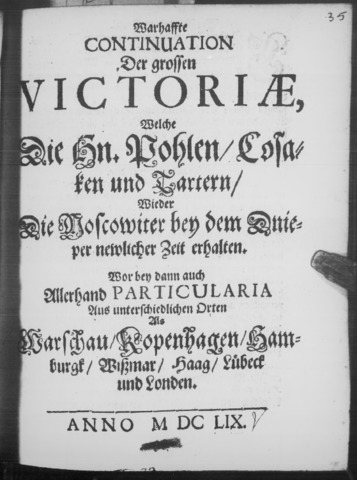 35
Warhaffte
CONTINUATION
Der grossen
VICTORIÆ,
Welche
Die Hn. Pohlen/ Cosa-
ken und Tartern/
Wieder
Die Moscowiter bey dem Dnie-
per newlicher Zeit erhalten.
Wor bey dann auch
Allerhand PARTICULARIA
Aus unterschiedlichen Orten
Als
Warschau/ Kopenhagen/ Ham-
burgk/ Wißmar/ Haag/ Lübeck
und Londen.
ANNO M DC LIX.